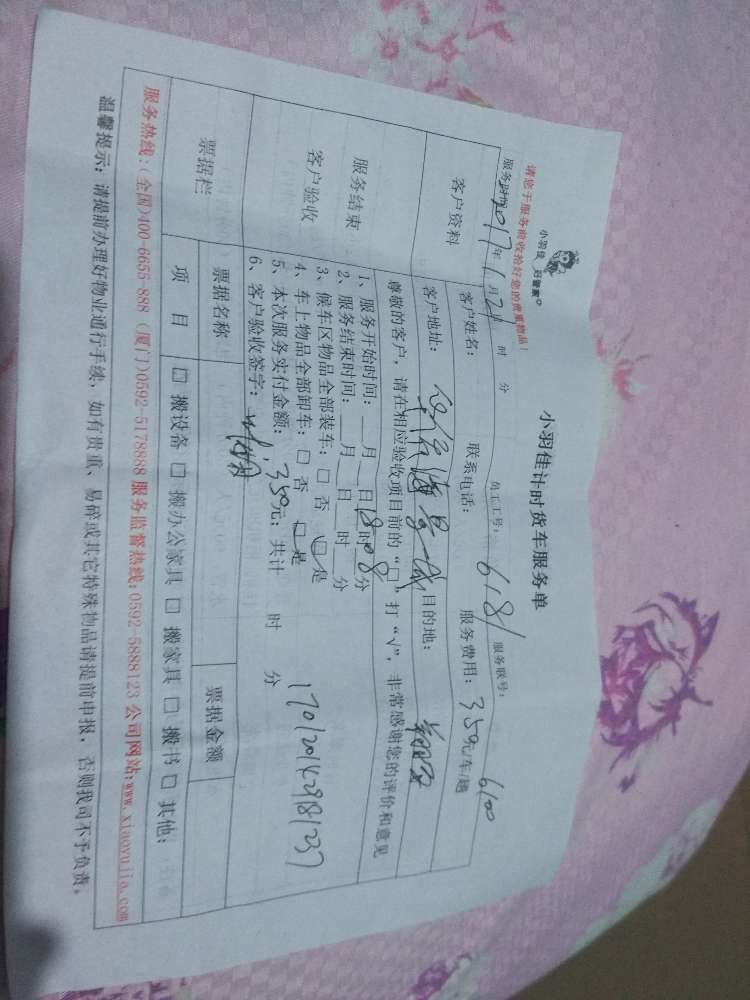 小羽佳 好管家
请您于服务前收拾好您的贵重物品!
小羽佳计时货车服务单
服务时间2017年1月21 时 分 员工工号: 6181 服务联号: 6100
客户资料
客户姓名: 联系电话: 服务费用: 350元/车/趟
客户地址: 目的地:
尊敬的客户,请在相应验收项目前的“□”打“√”,非常感谢您的评价和意见
服务结束
客户验收
1、服务开始时间: 月 日18时08分
2、服务结束时间: 月 日 时 分
3、候车区物品全部装车:□ 否 □是
4、车上物品全部卸车:□ 否 □是
5、本次服务实付金额: 350元;共计 时 分
6、客户验收签字:
1701201429181237
票据栏
票据名称 票据金额
项 目 □ 搬设备 □ 搬办公家具 □ 搬家具 □ 搬书 □ 其他:
服务热线:(全国)400-6655-888 (厦门)0592-5178888 服务监督热线:0592-5888123 公司网站:www.xiaoyujia.com
温馨提示: 请提前办理好物业通行手续,如有贵重、易碎或其它特殊物品请提前申报,否则我司不予负责。